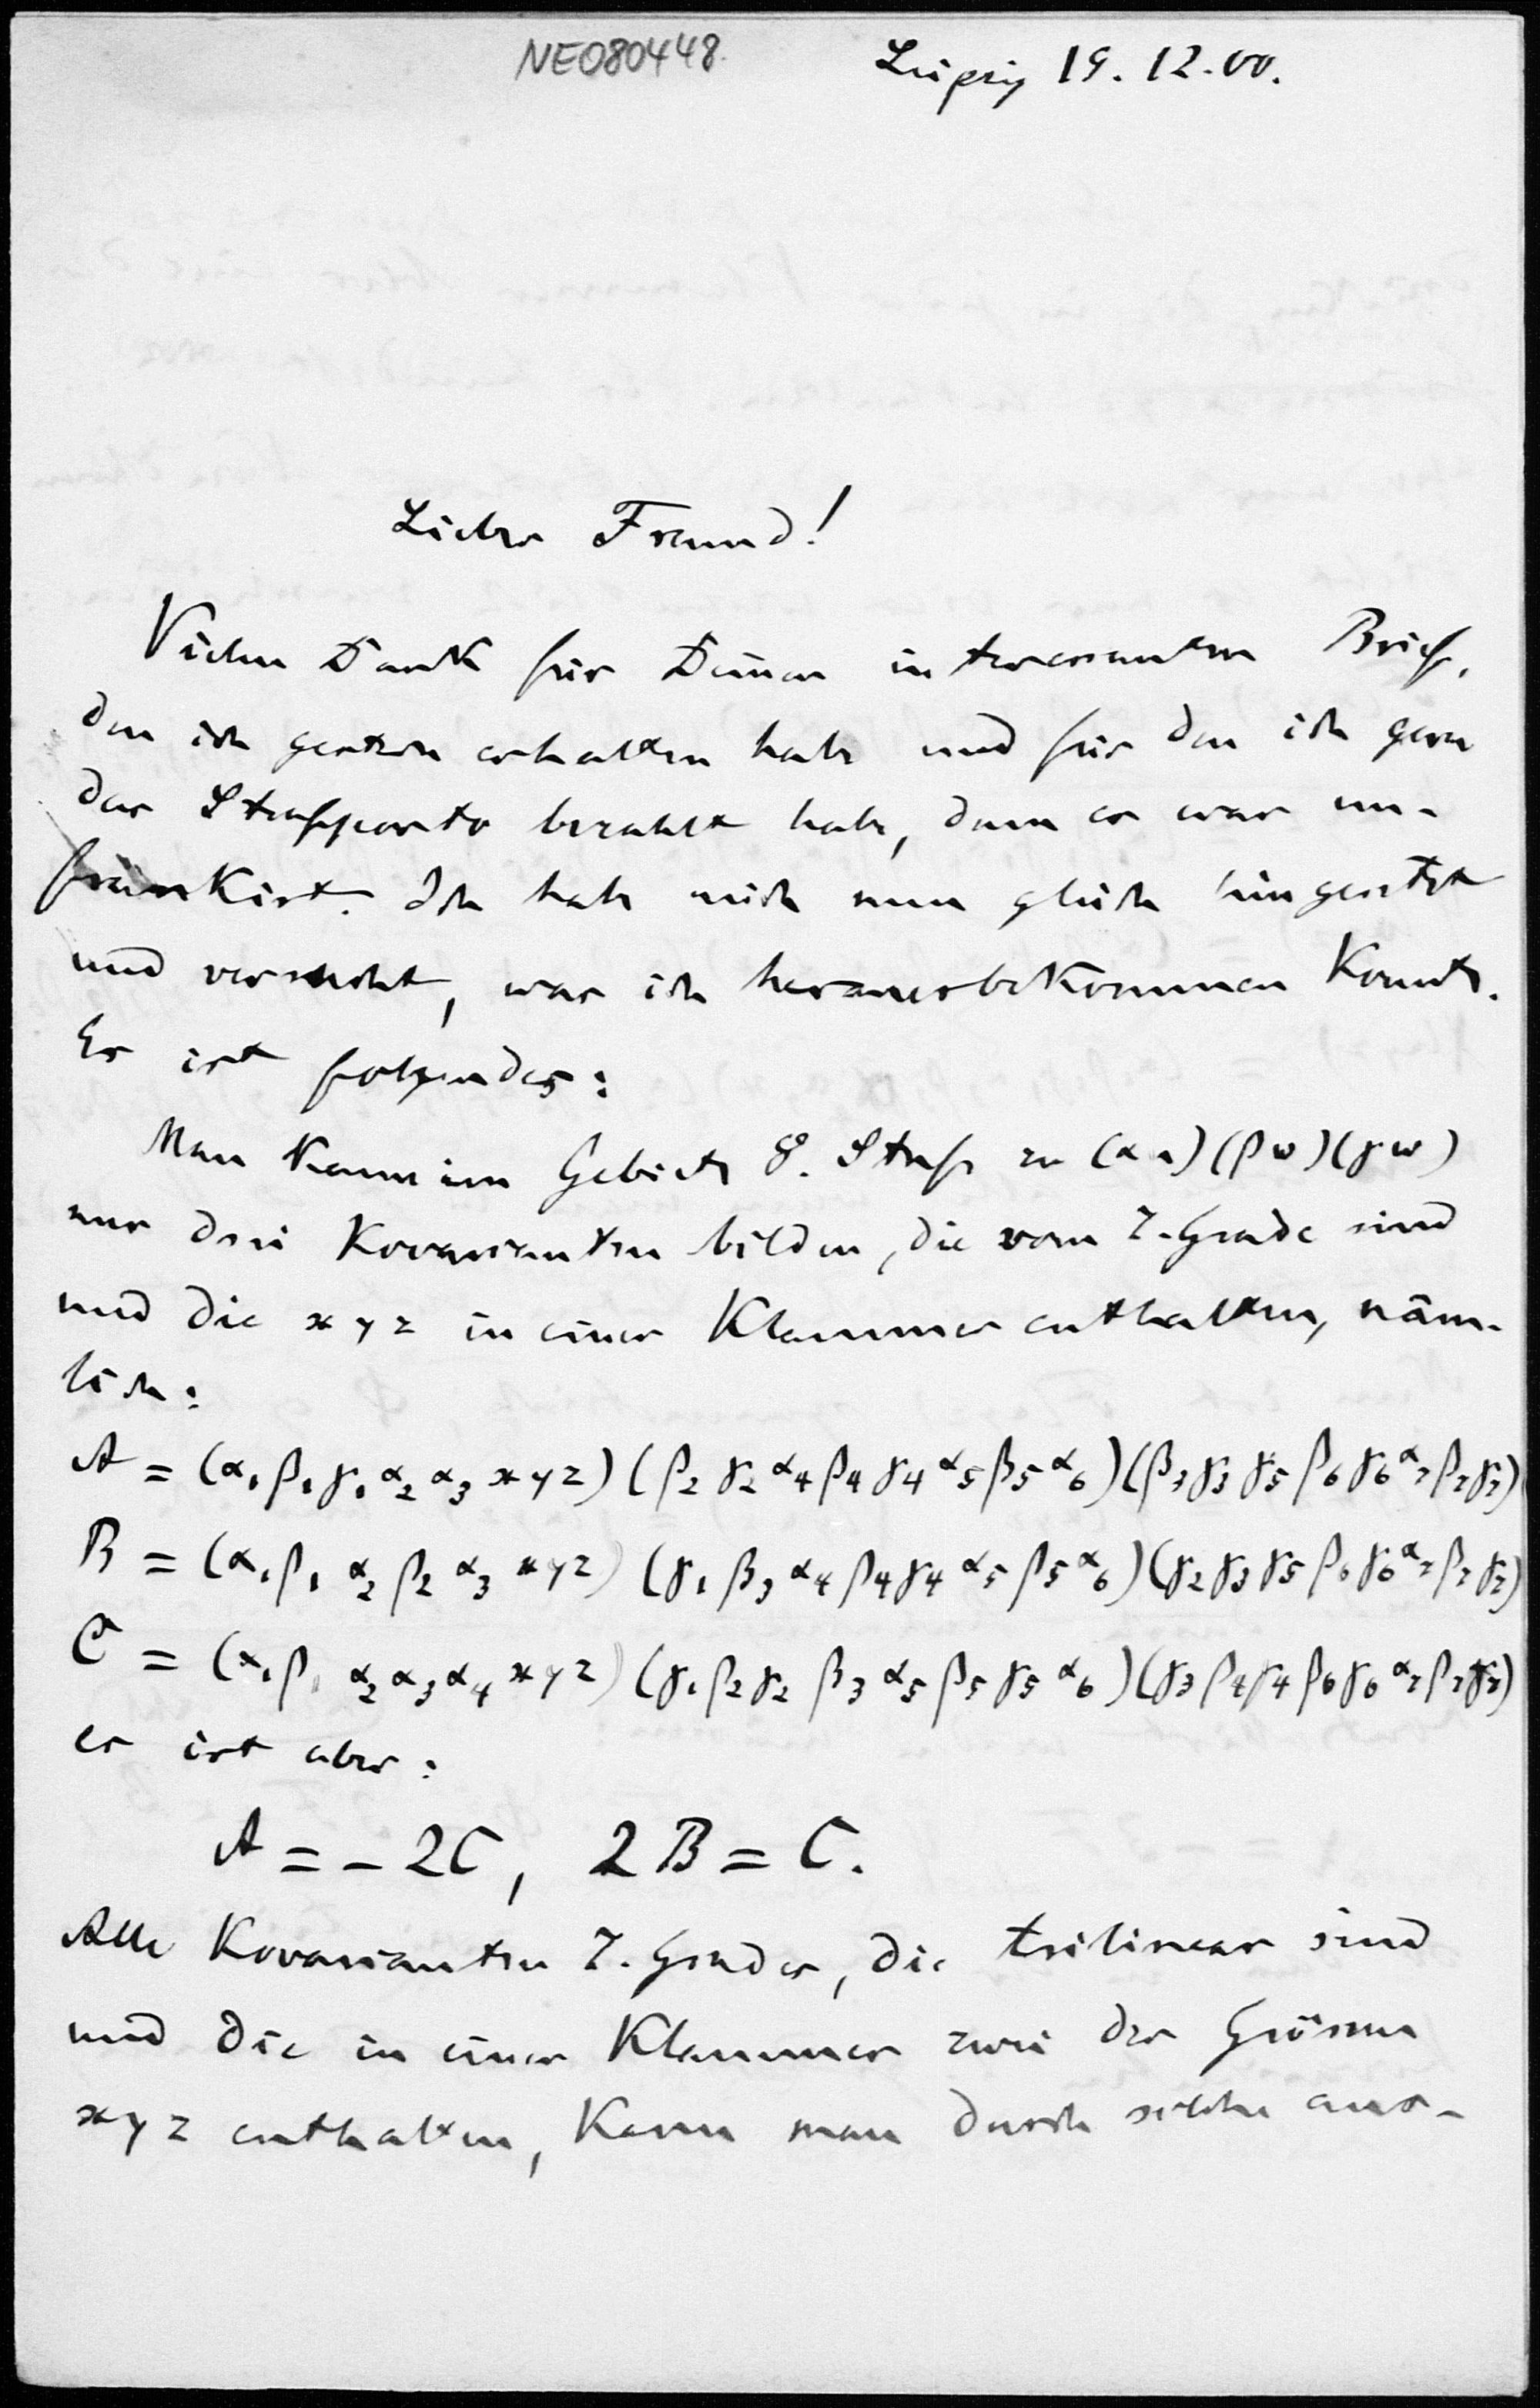 NE080448.
Leipzig 19.12.00.
Lieber Freund!
Vielen Dank für Deinen interessanten Brief,
den ich gestern erhalten habe und für den ich gern
das Strafporto bezahlt habe, denn er war un-
frankirt. Ich habe mich nun gleich hingesetzt
und versucht, was ich herausbekommen konnte.
Es ist folgendes:
Man kann im Gebiete 8. Stufe zu (αu)(βw)(γw)
nur drei Kovarianten bilden, die vom 7. Grade sind
und die x y z in einer Klammer enthalten, näm-
lich:
A = (α₁β₁γ₁α₂α₃xyz)(β₂γ₂α₄β₄γ₄α₅β₅α₆)(β₃γ₃γ₅β₆γ₆α₇β₇γ₇)
B = (α₁β₁α₂β₂α₃xyz)(γ₁β₃α₄β₄γ₄α₅β₅α₆)(γ₂γ₃γ₅β₆γ₆α₇β₇γ₇)
C = (α₁β₁α₂α₃α₄xyz)(γ₁β₂γ₂β₃α₅β₅γ₅α₆)(γ₃β₄γ₄β₆γ₆α₇β₇γ₇)
es ist aber:
A = -2C, 2B = C.
Alle Kovarianten 7. Grades, die trilinear sind
und die in einer Klammer zwei der Grössen
x y z enthalten, kann man durch solche aus-